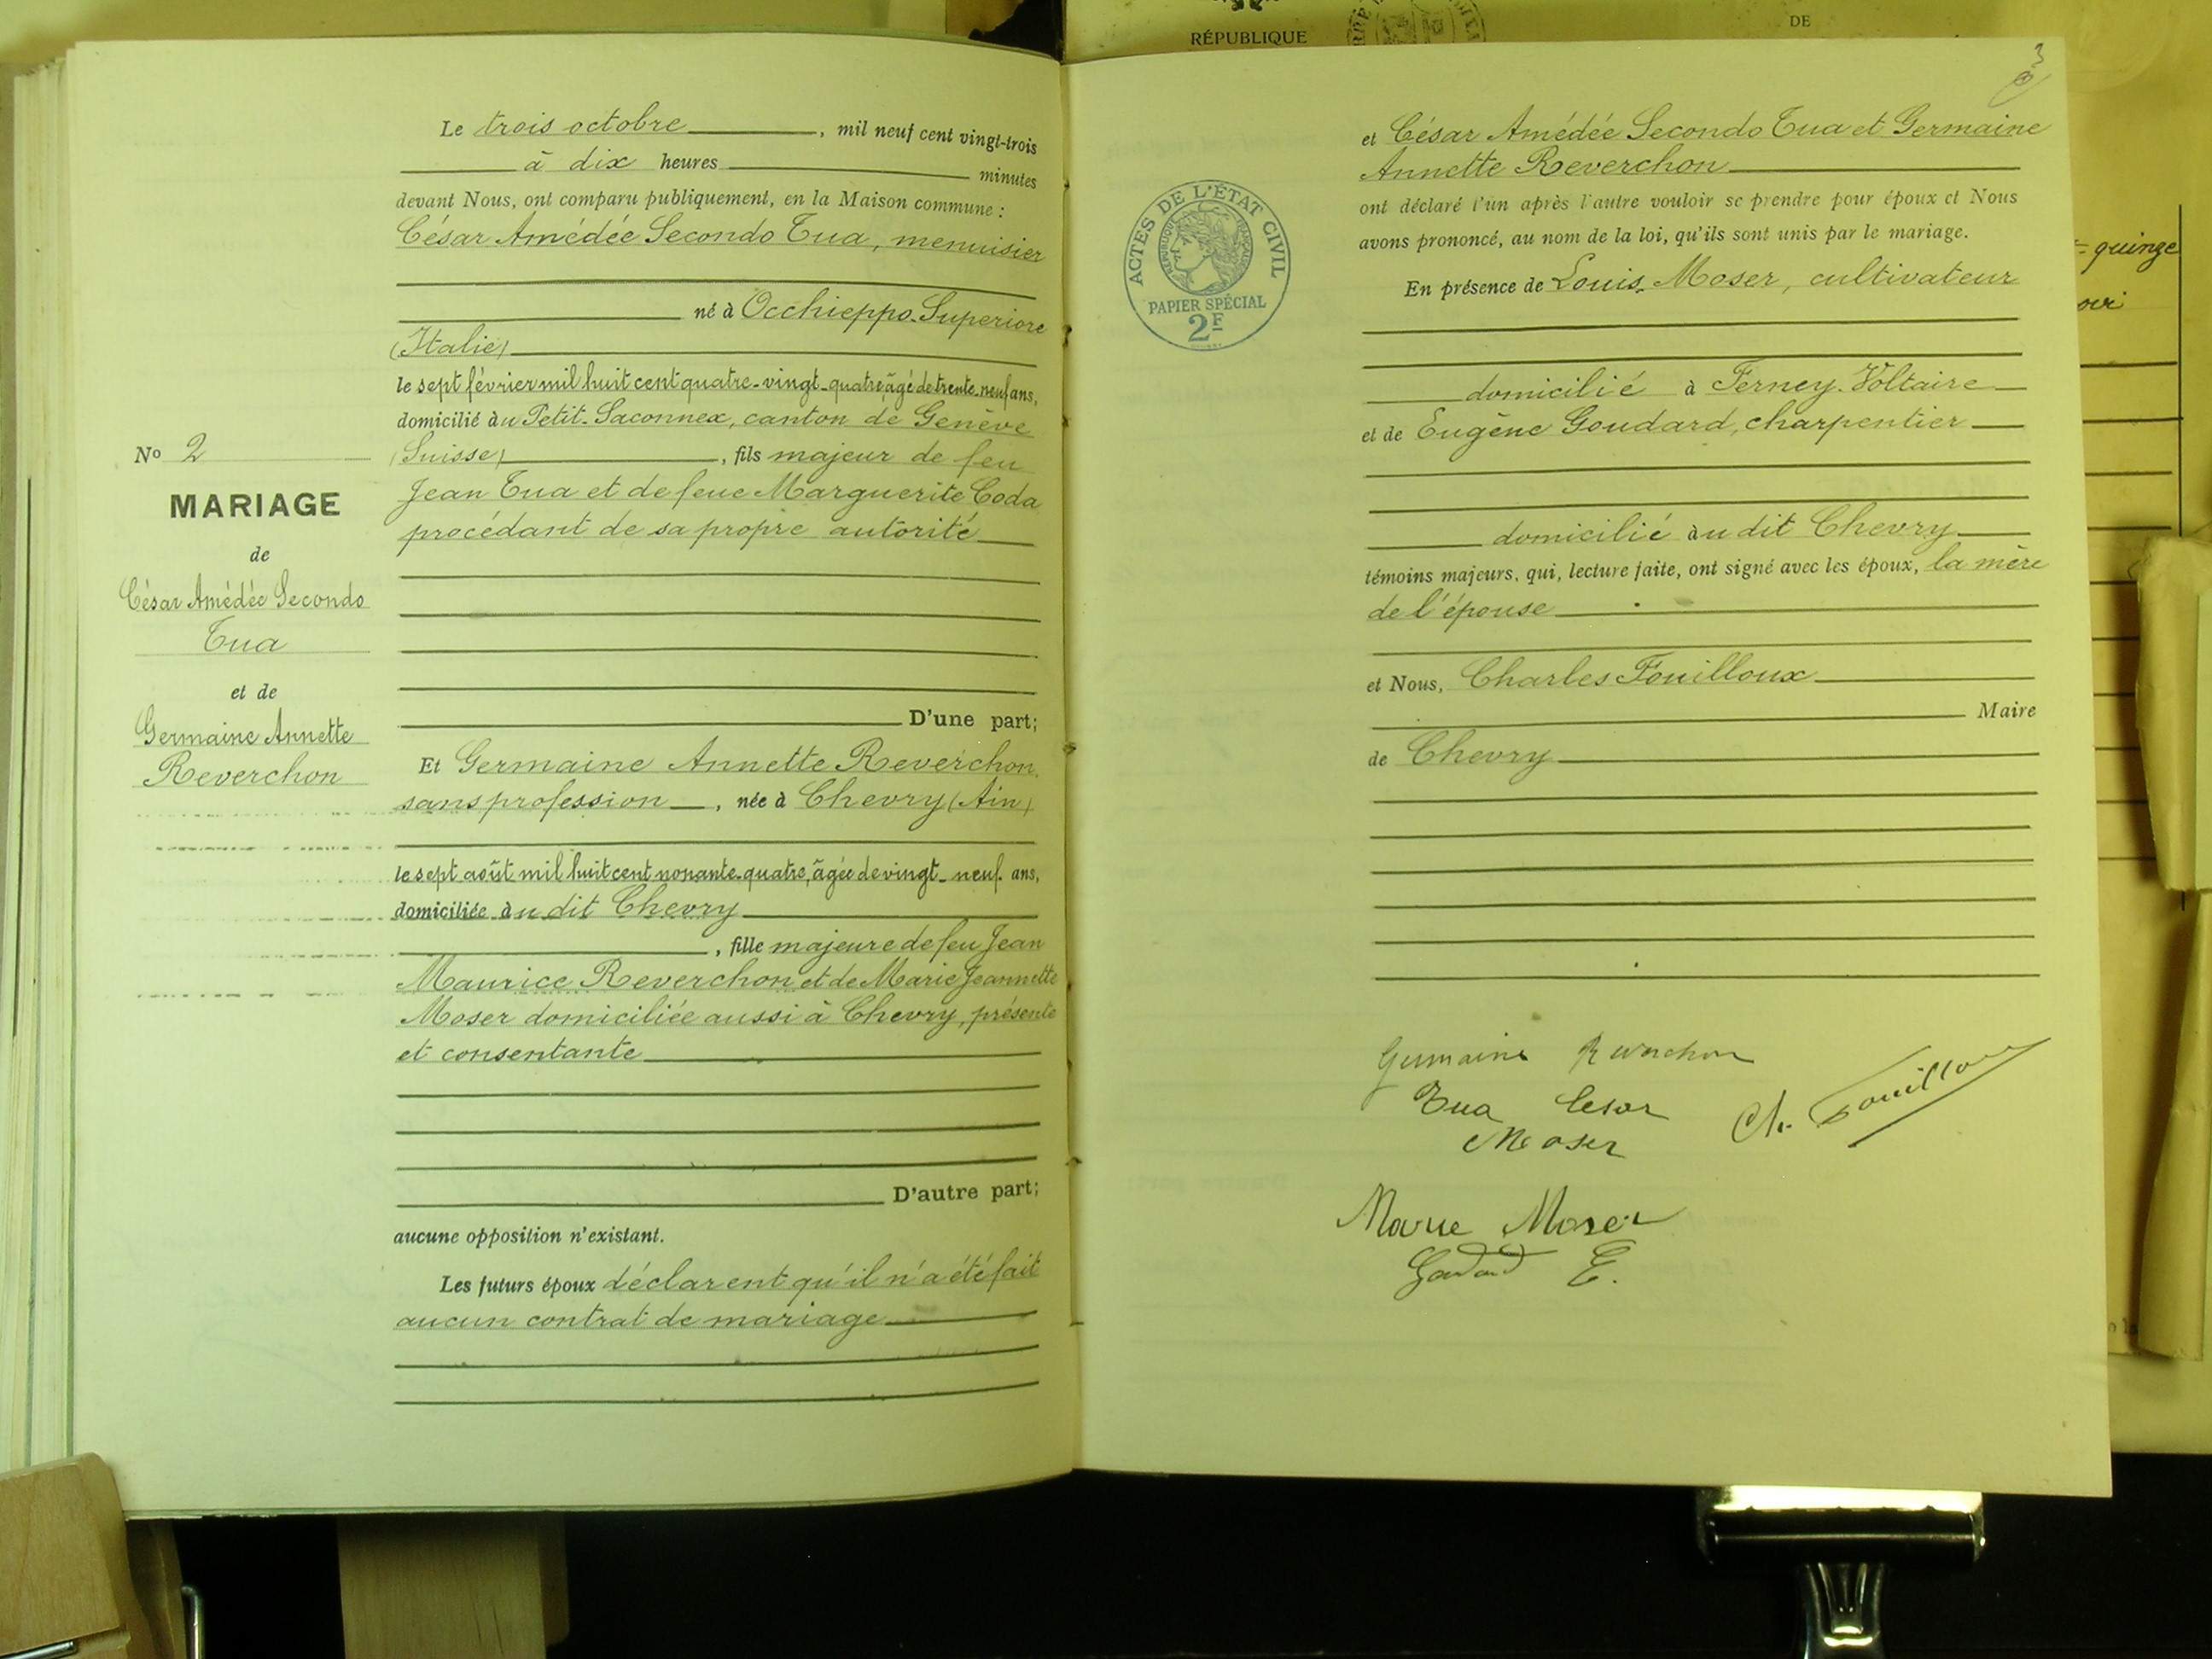 RÉPUBLIQUE
DE
Le trois octobre, mil neuf cent vingt-trois
à dix heures minutes
devant Nous, ont comparu publiquement, en la Maison commune :
César Amédée Secondo Tua, menuisier
né à Occhieppo-Superiore
(Italie)
le sept février mil huit cent quatre-vingt-quatre, âgé de trente-neuf ans,
domicilié au Petit-Saconnex, canton de Genève
(Suisse), fils majeur de feu
Jean Tua et de feue Marguerite Coda
procédant de sa propre autorité
D'une part;
Et Germaine Annette Reverchon,
sans profession, née à Chevry (Ain)
le sept août mil huit cent nonante-quatre, âgée de vingt-neuf ans,
domiciliée au dit Chevry
, fille majeure de feu Jean
Maurice Reverchon et de Marie Jeannette
Moser domiciliée aussi à Chevry, présente
et consentante
D'autre part;
aucune opposition n'existant.
Les futurs époux déclarent qu'il n'a été fait
aucun contrat de mariage
No 2
MARIAGE
de
César Amédée Secondo
Tua
et de
Germaine Annette
Reverchon
3
ACTES DE L'ÉTAT CIVIL
RÉPUBLIQUE FRANÇAISE
PAPIER SPÉCIAL
2F
et César Amédée Secondo Tua et Germaine
Annette Reverchon
ont déclaré l'un après l'autre vouloir se prendre pour époux et Nous
avons prononcé, au nom de la loi, qu'ils sont unis par le mariage.
En présence de Louis Moser, cultivateur
domicilié à Ferney-Voltaire
et de Eugène Goudard, charpentier
domicilié au dit Chevry
témoins majeurs, qui, lecture faite, ont signé avec les époux, la mère
de l'épouse
et Nous, Charles Fouilloux
Maire
de Chevry
Germaine Reverchon
Tua Cesar
Moser
Ch. Fouilloux
Marie Moser
Goudard E.
quinze